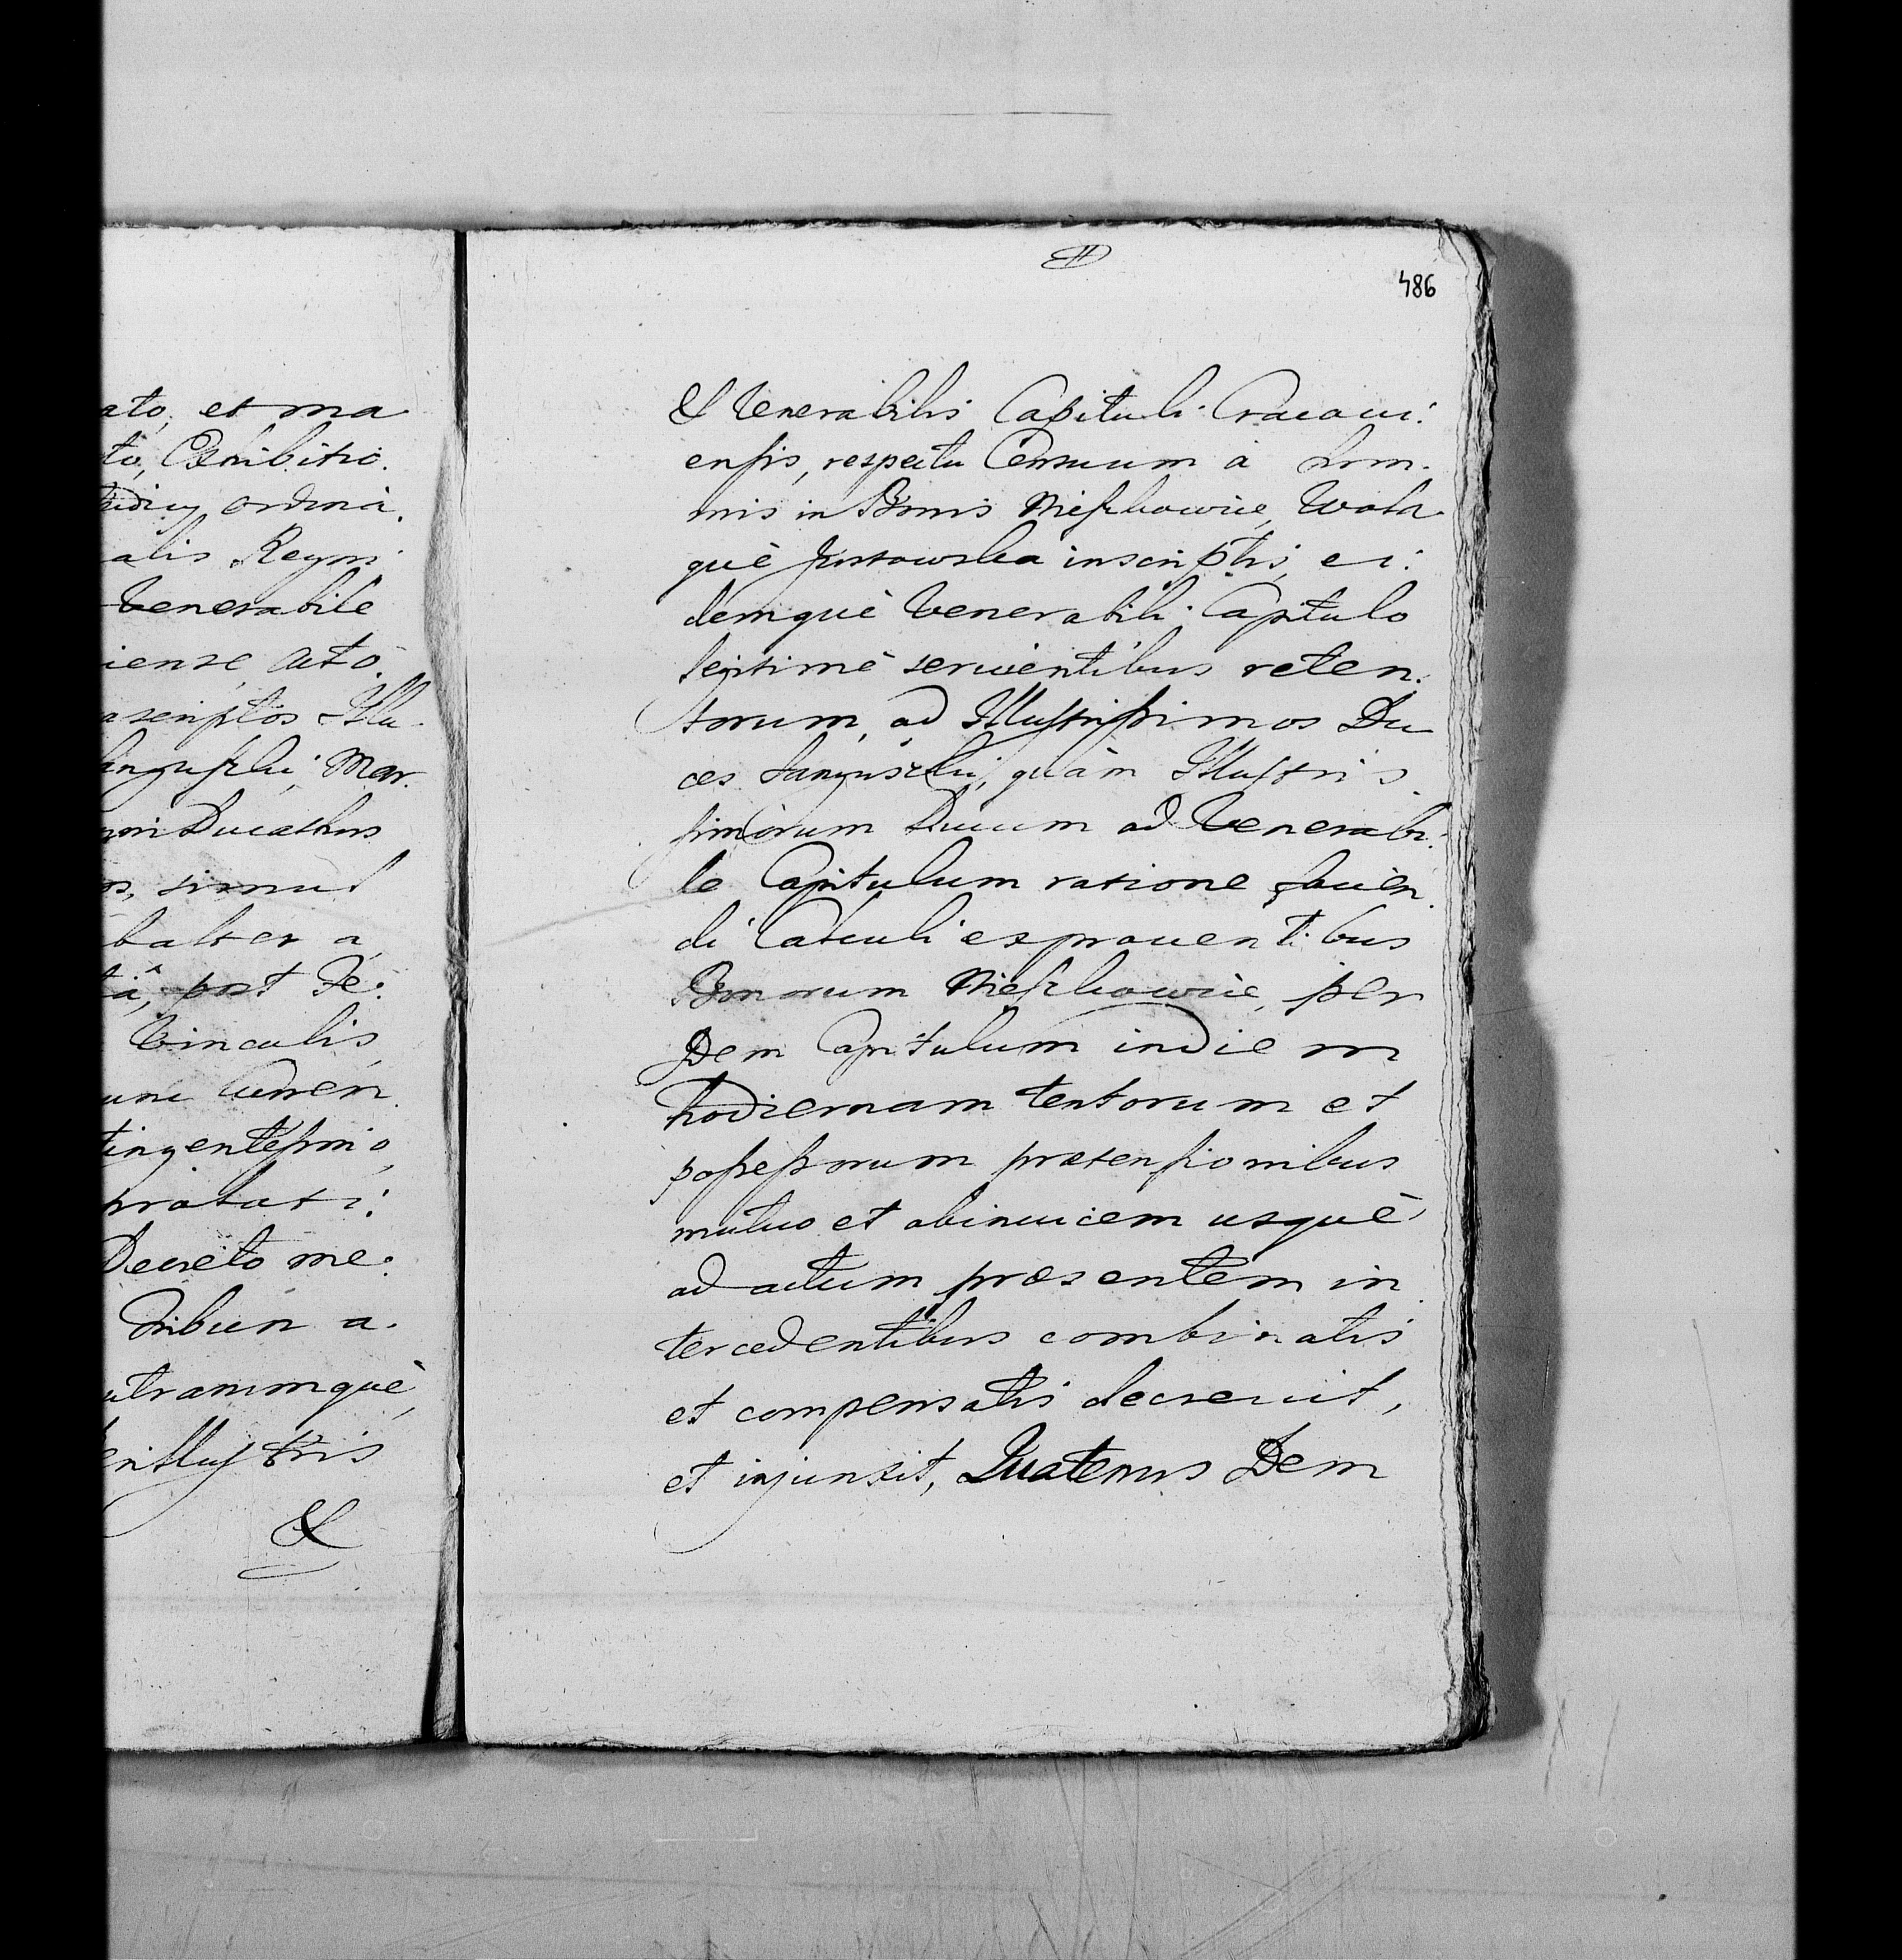 ato, et ma
to, Exhibitio.
udicy ordina.
alis Regni
Venerabile
iense, acto.
ascriptos Illu.
anguszki, Mar.
Ducatbus
simul
balter a
tâ, post Fe:
Vinculis
tingentesimo,
Decreto me:
Tribun a.
utrammque,
&
486
& Venerabilis Capituli Cracovi:
ensis, respectu Censuum à Sum.
mis in Bonis Mieszkowice, Wola.
què Justowska inscriptis, ei:
demquè Venerabili Capitulo
legitimè servientibus reten:
torum, ad Illustrissimos Du
ces Sanguszki, quàm Illustris
simorum Ducum ad Venerabi:
le Capitulum ratione facien.
di Calculi exproventibus
Bonorum Mieszkowice, per
Idem Capitulum indie m
hodiernam tentorum et
possessorum praetensionibus
mutuo et abinvicem usquè
ad actum praesentem in
tercedentibus combinatis
et compensatis decrevit,
et injunxit, Quatenus Idem